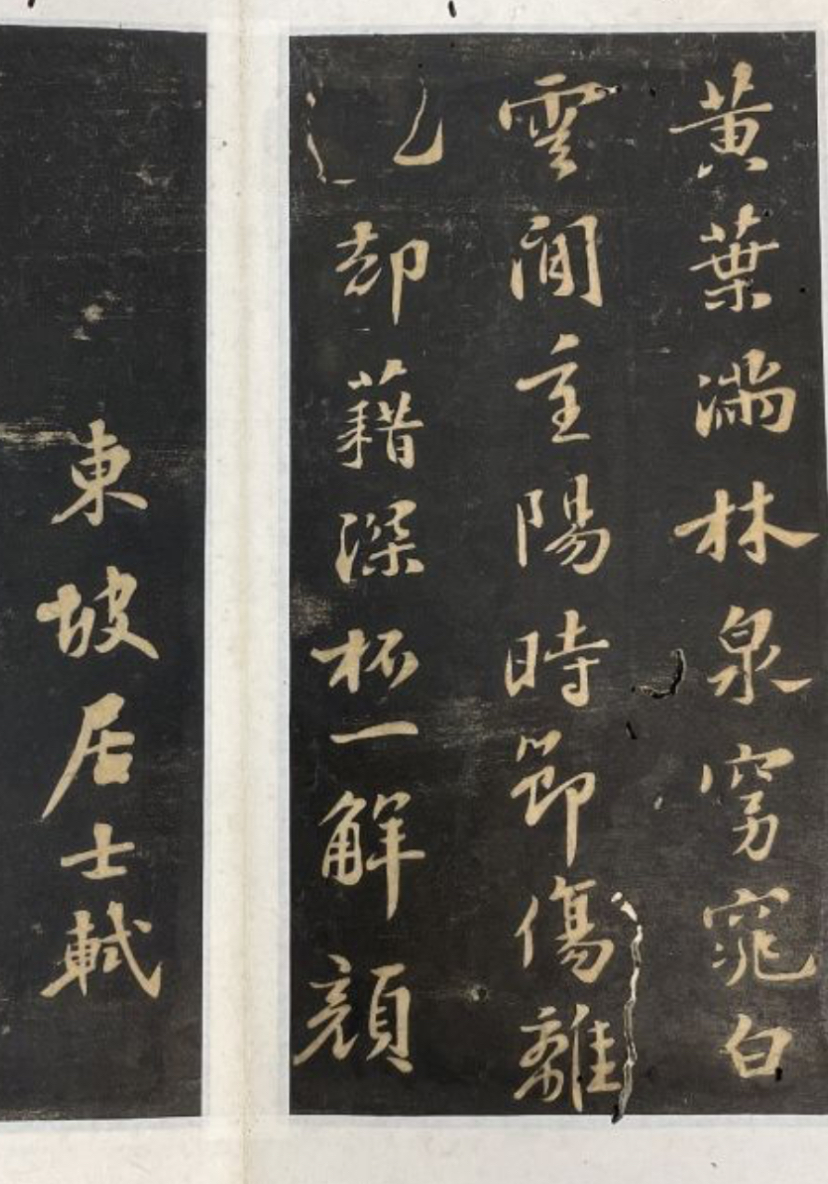 黄葉滿林泉窈窕白
雲間重陽時節傷離
却藉深杯一解顔
東坡居士軾